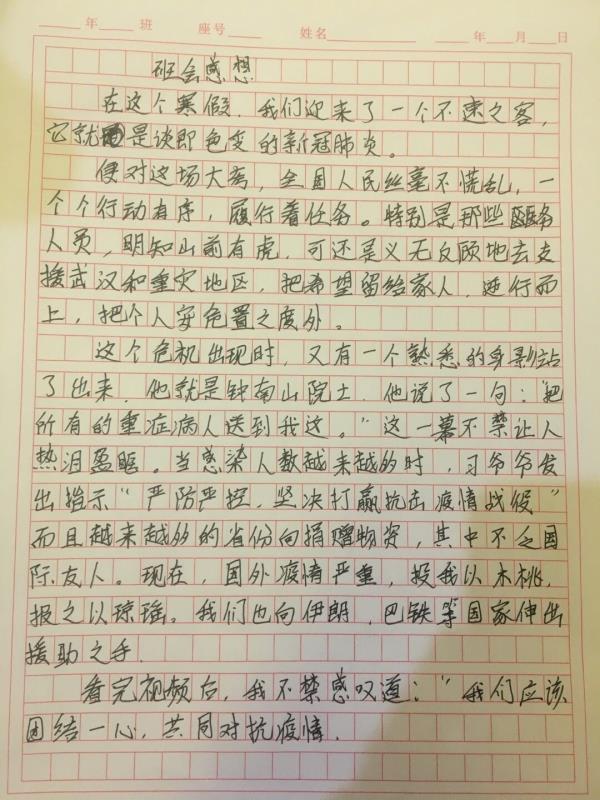 年 班 座号 姓名 年 月 日
班会感想
在这个寒假，我们迎来了一个不速之客，
它就是谈即色变的新冠肺炎。
便对这场大考，全国人民丝毫不慌乱，一
个个行动有序，履行着任务。特别是那些医务
人员，明知山前有虎，可还是义无反顾地去支
援武汉和重灾地区，把希望留给家人，逆行而
上，把个人安危置之度外。
这个危机出现时，又有一个熟悉的身影站
了出来，他就是钟南山院士，他说了一句：“把
所有的重症病人送到我这。”这一幕不禁让人
热泪盈眶。当感染人数越来越多时，习爷爷发
出指示“严防严控，坚决打赢抗击疫情战役”
而且越来越多的省份向捐赠物资，其中不乏国
际友人。现在，国外疫情严重，投我以木桃，
报之以琼瑶。我们也向伊朗，巴铁等国家伸出
援助之手.
看完视频后，我不禁感叹道：“我们应该
团结一心，共同对抗疫情.